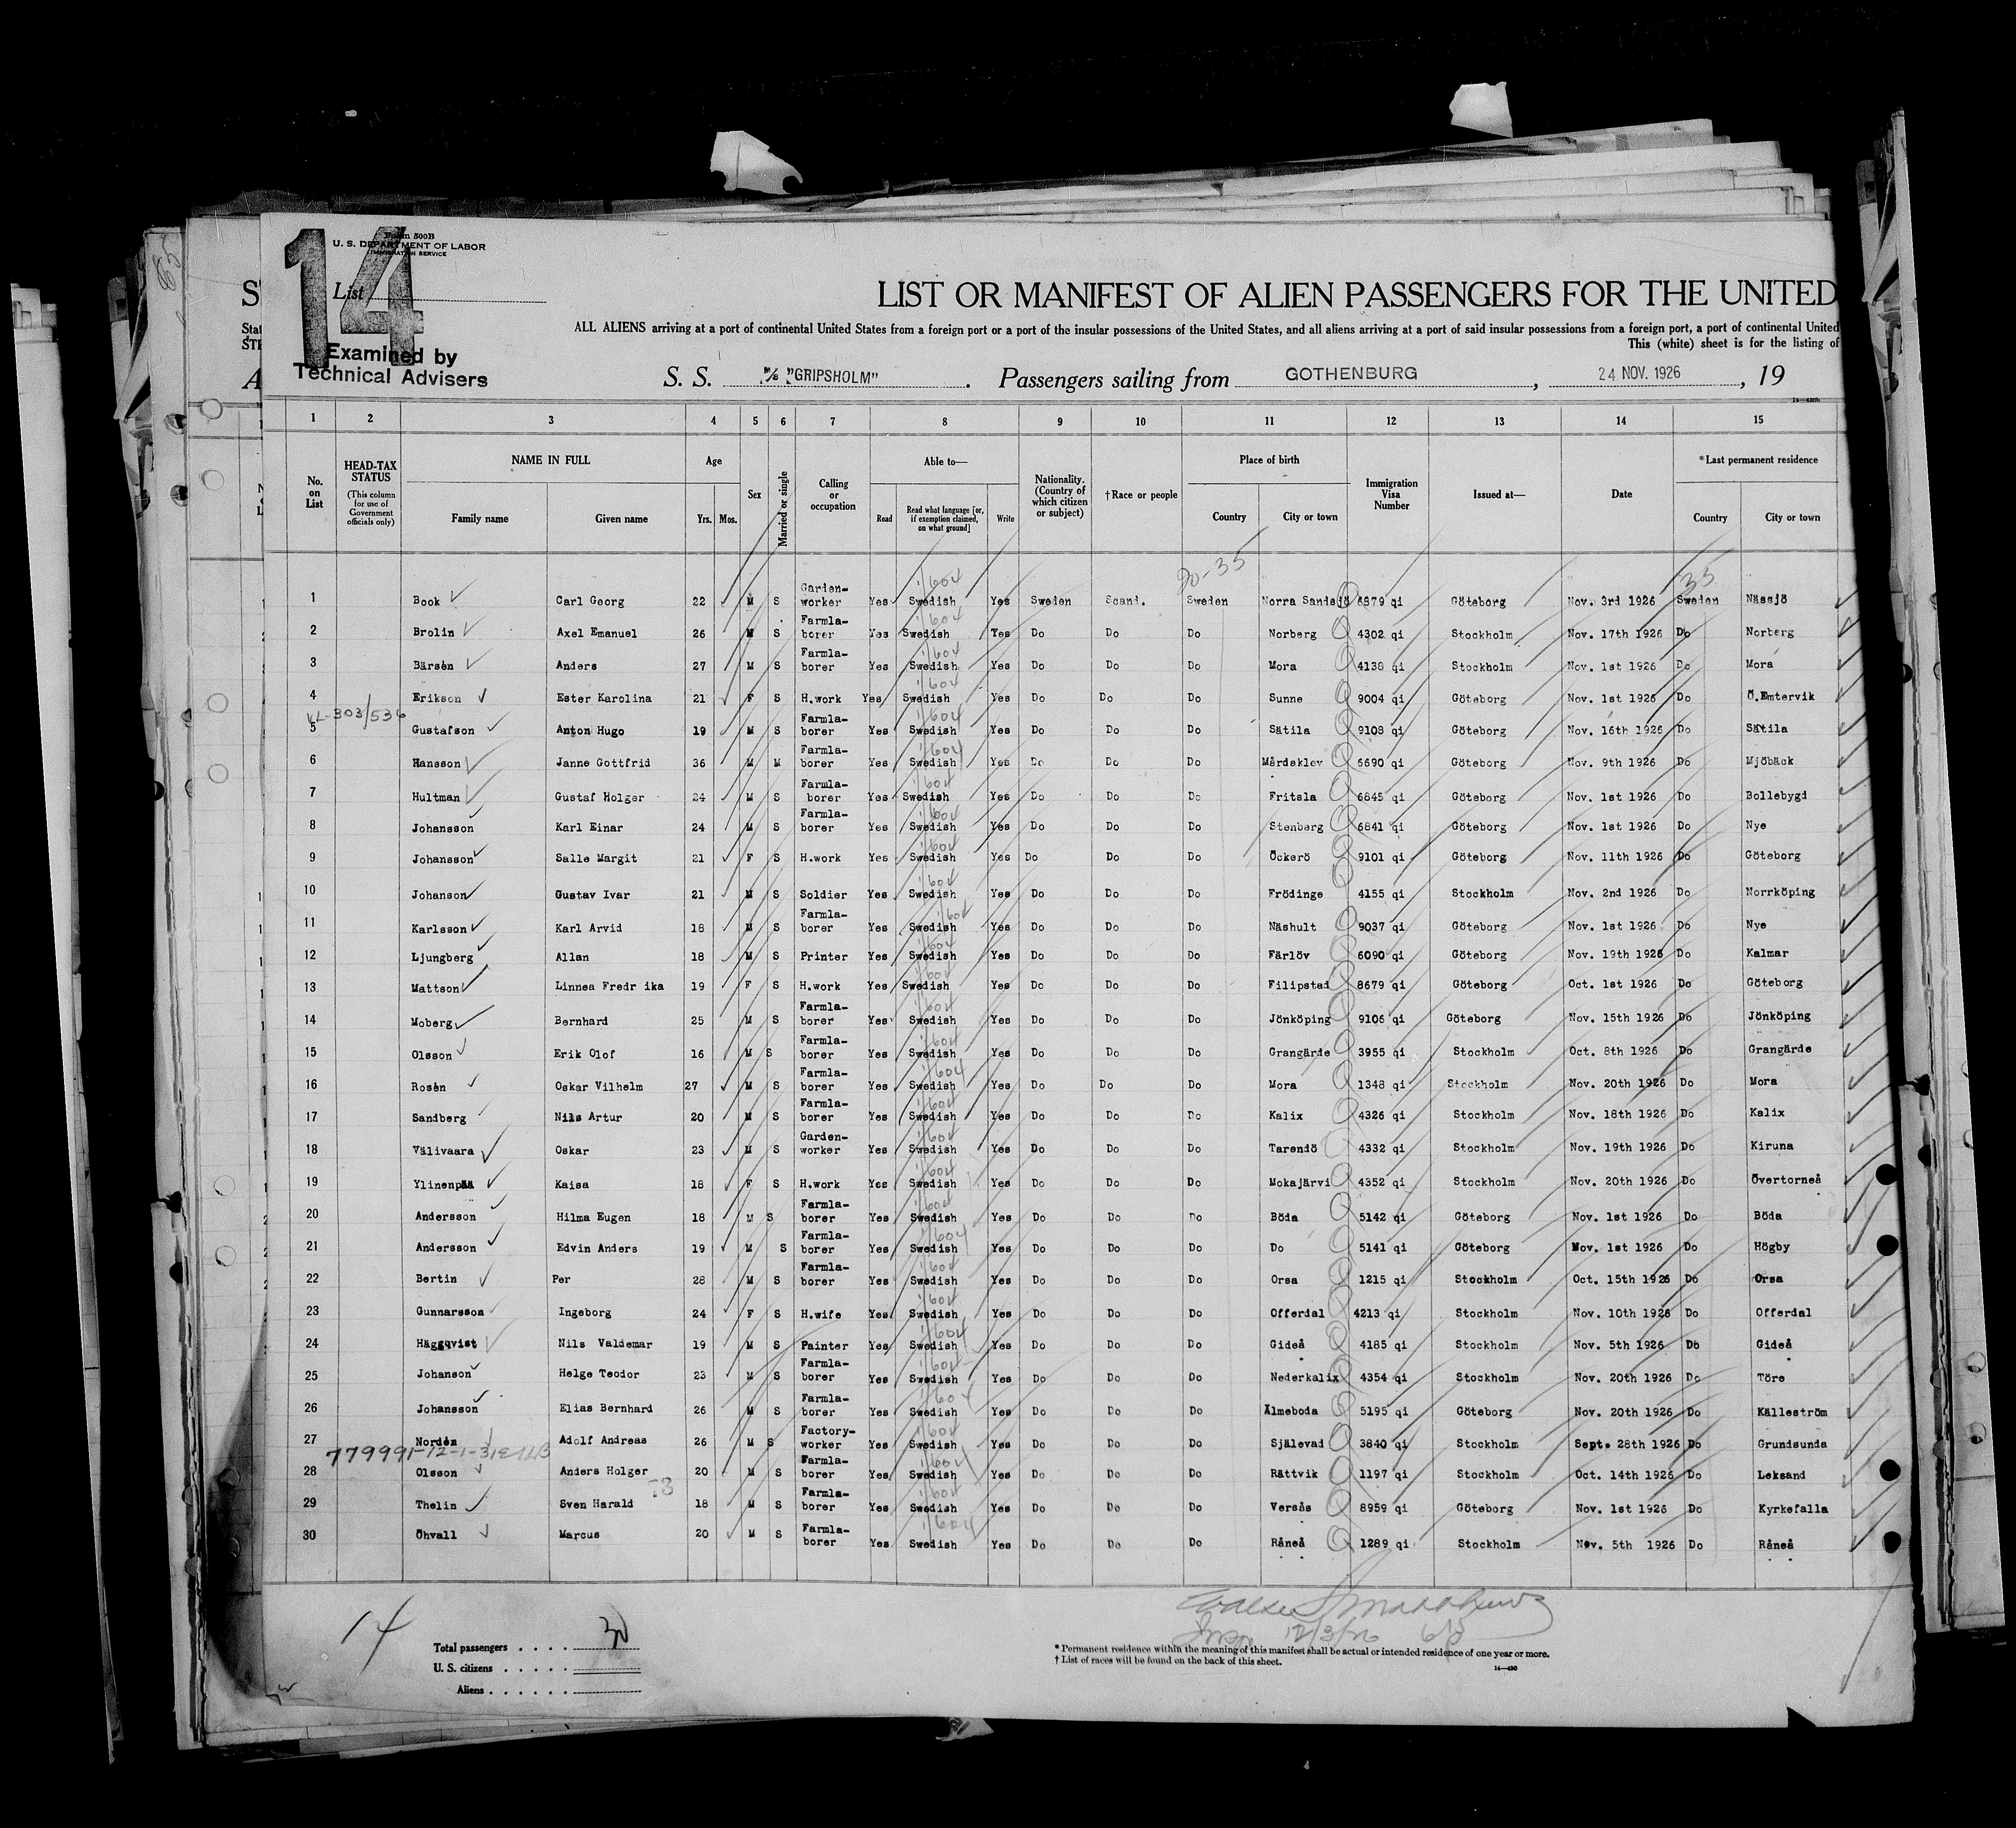 14
Form 500B
U. S. DEPARTMENT OF LABOR
IMMIGRATION SERVICE
List
Examined by
Technical Advisers
LIST OR MANIFEST OF ALIEN PASSENGERS FOR THE UNITED
ALL ALIENS arriving at a port of continental United States from a foreign port or a port of the insular possessions of the United States, and all aliens arriving at a port of said insular possessions from a foreign port, a port of continental United
This (white) sheet is for the listing of
S. S. M/S "GRIPSHOLM" . Passengers sailing from GOTHENBURG , 24 NOV. 1926 , 19
1 2 3 4 5 6 7 8 9 10 11 12 13 14 15
No. on List HEAD-TAX STATUS (This column for use of Government officials only) NAME IN FULL Family name Given name Age Yrs. Mos. Sex Married or single Calling or occupation Able to— Read Read what language [or, if exemption claimed, on what ground] Write Nationality. (Country of which citizen or subject) †Race or people Place of birth Country City or town Immigration Visa Number Issued at— Date *Last permanent residence Country City or town
1 Book Carl Georg 22 M S Garden-worker Yes Swedish Yes Sweden Scand. Sweden Norra Sandsjö 6879 qi Göteborg Nov. 3rd 1926 Sweden Nässjö
2 Brolin Axel Emanuel 26 M S Farmla-borer Yes Swedish Yes Do Do Do Norberg 4302 qi Stockholm Nov. 17th 1926 Do Norberg
3 Bärsén Anders 27 M S Farmla-borer Yes Swedish Yes Do Do Do Mora 4138 qi Stockholm Nov. 1st 1926 Do Mora
4 Erikson Ester Karolina 21 F S H.work Yes Swedish Yes Do Do Do Sunne 9004 qi Göteborg Nov. 1st 1926 Do Ö.Emtervik
VL-303/536
5 Gustafson Anton Hugo 19 M S Farmla-borer Yes Swedish Yes Do Do Do Sätila 9108 qi Göteborg Nov. 16th 1926 Do Sätila
6 Hansson Janne Gottfrid 36 M M Farmla-borer Yes Swedish Yes Do Do Do Mårdsklev 6690 qi Göteborg Nov. 9th 1926 Do Mjöbäck
7 Hultman Gustaf Holger 24 M S Farmla-borer Yes Swedish Yes Do Do Do Fritsla 6845 qi Göteborg Nov. 1st 1926 Do Bollebygd
8 Johansson Karl Einar 24 M S Farmla-borer Yes Swedish Yes Do Do Do Stenberg 6841 qi Göteborg Nov. 1st 1926 Do Nye
9 Johansson Salle Margit 21 F S H.work Yes Swedish Yes Do Do Do Öckerö 9101 qi Göteborg Nov. 11th 1926 Do Göteborg
10 Johanson Gustav Ivar 21 M S Soldier Yes Swedish Yes Do Do Do Frödinge 4155 qi Stockholm Nov. 2nd 1926 Do Norrköping
11 Karlsson Karl Arvid 18 M S Farmla-borer Yes Swedish Yes Do Do Do Näshult 9037 qi Göteborg Nov. 1st 1926 Do Nye
12 Ljungberg Allan 18 M S Printer Yes Swedish Yes Do Do Do Färlöv 6090 qi Göteborg Nov. 19th 1926 Do Kalmar
13 Mattson Linnea Fredr ika 19 F S H.work Yes Swedish Yes Do Do Do Filipstad 8679 qi Göteborg Oct. 1st 1926 Do Göteborg
14 Moberg Bernhard 25 M S Farmla-borer Yes Swedish Yes Do Do Do Jönköping 9106 qi Göteborg Nov. 15th 1926 Do Jönköping
15 Olsson Erik Olof 16 M S Farmla-borer Yes Swedish Yes Do Do Do Grangärde 3955 qi Stockholm Oct. 8th 1926 Do Grangärde
16 Rosén Oskar Vilhelm 27 M S Farmla-borer Yes Swedish Yes Do Do Do Mora 1348 qi Stockholm Nov. 20th 1926 Do Mora
17 Sandberg Nils Artur 20 M S Farmla-borer Yes Swedish Yes Do Do Do Kalix 4326 qi Stockholm Nov. 18th 1926 Do Kalix
18 Välivaara Oskar 23 M S Garden-worker Yes Swedish Yes Do Do Do Tarendö 4332 qi Stockholm Nov. 19th 1926 Do Kiruna
19 Ylinenpää Kaisa 18 F S H.work Yes Swedish Yes Do Do Do Mokajärvi 4352 qi Stockholm Nov. 20th 1926 Do Övertorneå
20 Andersson Hilma Eugen 18 M S Farmla-borer Yes Swedish Yes Do Do Do Böda 5142 qi Göteborg Nov. 1st 1926 Do Böda
21 Andersson Edvin Anders 19 M S Farmla-borer Yes Swedish Yes Do Do Do Do 5141 qi Göteborg Nov. 1st 1926 Do Högby
22 Bertin Per 28 M S Farmla-borer Yes Swedish Yes Do Do Do Orsa 1215 qi Stockholm Oct. 15th 1926 Do Orsa
23 Gunnarsson Ingeborg 24 F S H.wife Yes Swedish Yes Do Do Do Offerdal 4213 qi Stockholm Nov. 10th 1926 Do Offerdal
24 Häggqvist Nils Valdemar 19 M S Painter Yes Swedish Yes Do Do Do Gideå 4185 qi Stockholm Nov. 5th 1926 Do Gideå
25 Johanson Helge Teodor 23 M S Farmla-borer Yes Swedish Yes Do Do Do Nederkalix 4354 qi Stockholm Nov. 20th 1926 Do Töre
26 Johansson Elias Bernhard 26 M S Farmla-borer Yes Swedish Yes Do Do Do Älmeboda 5195 qi Göteborg Nov. 20th 1926 Do Källeström
27 Nordén Adolf Andreas 26 M S Factory-worker Yes Swedish Yes Do Do Do Själevad 3840 qi Stockholm Sept. 28th 1926 Do Grundsunda
28 Olsson Anders Holger 20 M S Farmla-borer Yes Swedish Yes Do Do Do Rättvik 1197 qi Stockholm Oct. 14th 1926 Do Leksand
29 Thelin Sven Harald 18 M S Farmla-borer Yes Swedish Yes Do Do Do Versås 8959 qi Göteborg Nov. 1st 1926 Do Kyrkefalla
30 Öhvall Marcus 20 M S Farmla-borer Yes Swedish Yes Do Do Do Råneå 1289 qi Stockholm Nov. 5th 1926 Do Råneå
14
Total passengers . . . . 30
U. S. citizens . . . . . .
Aliens . . . . . .
12/3/26
* Permanent residence within the meaning of this manifest shall be actual or intended residence of one year or more.
† List of races will be found on the back of this sheet.